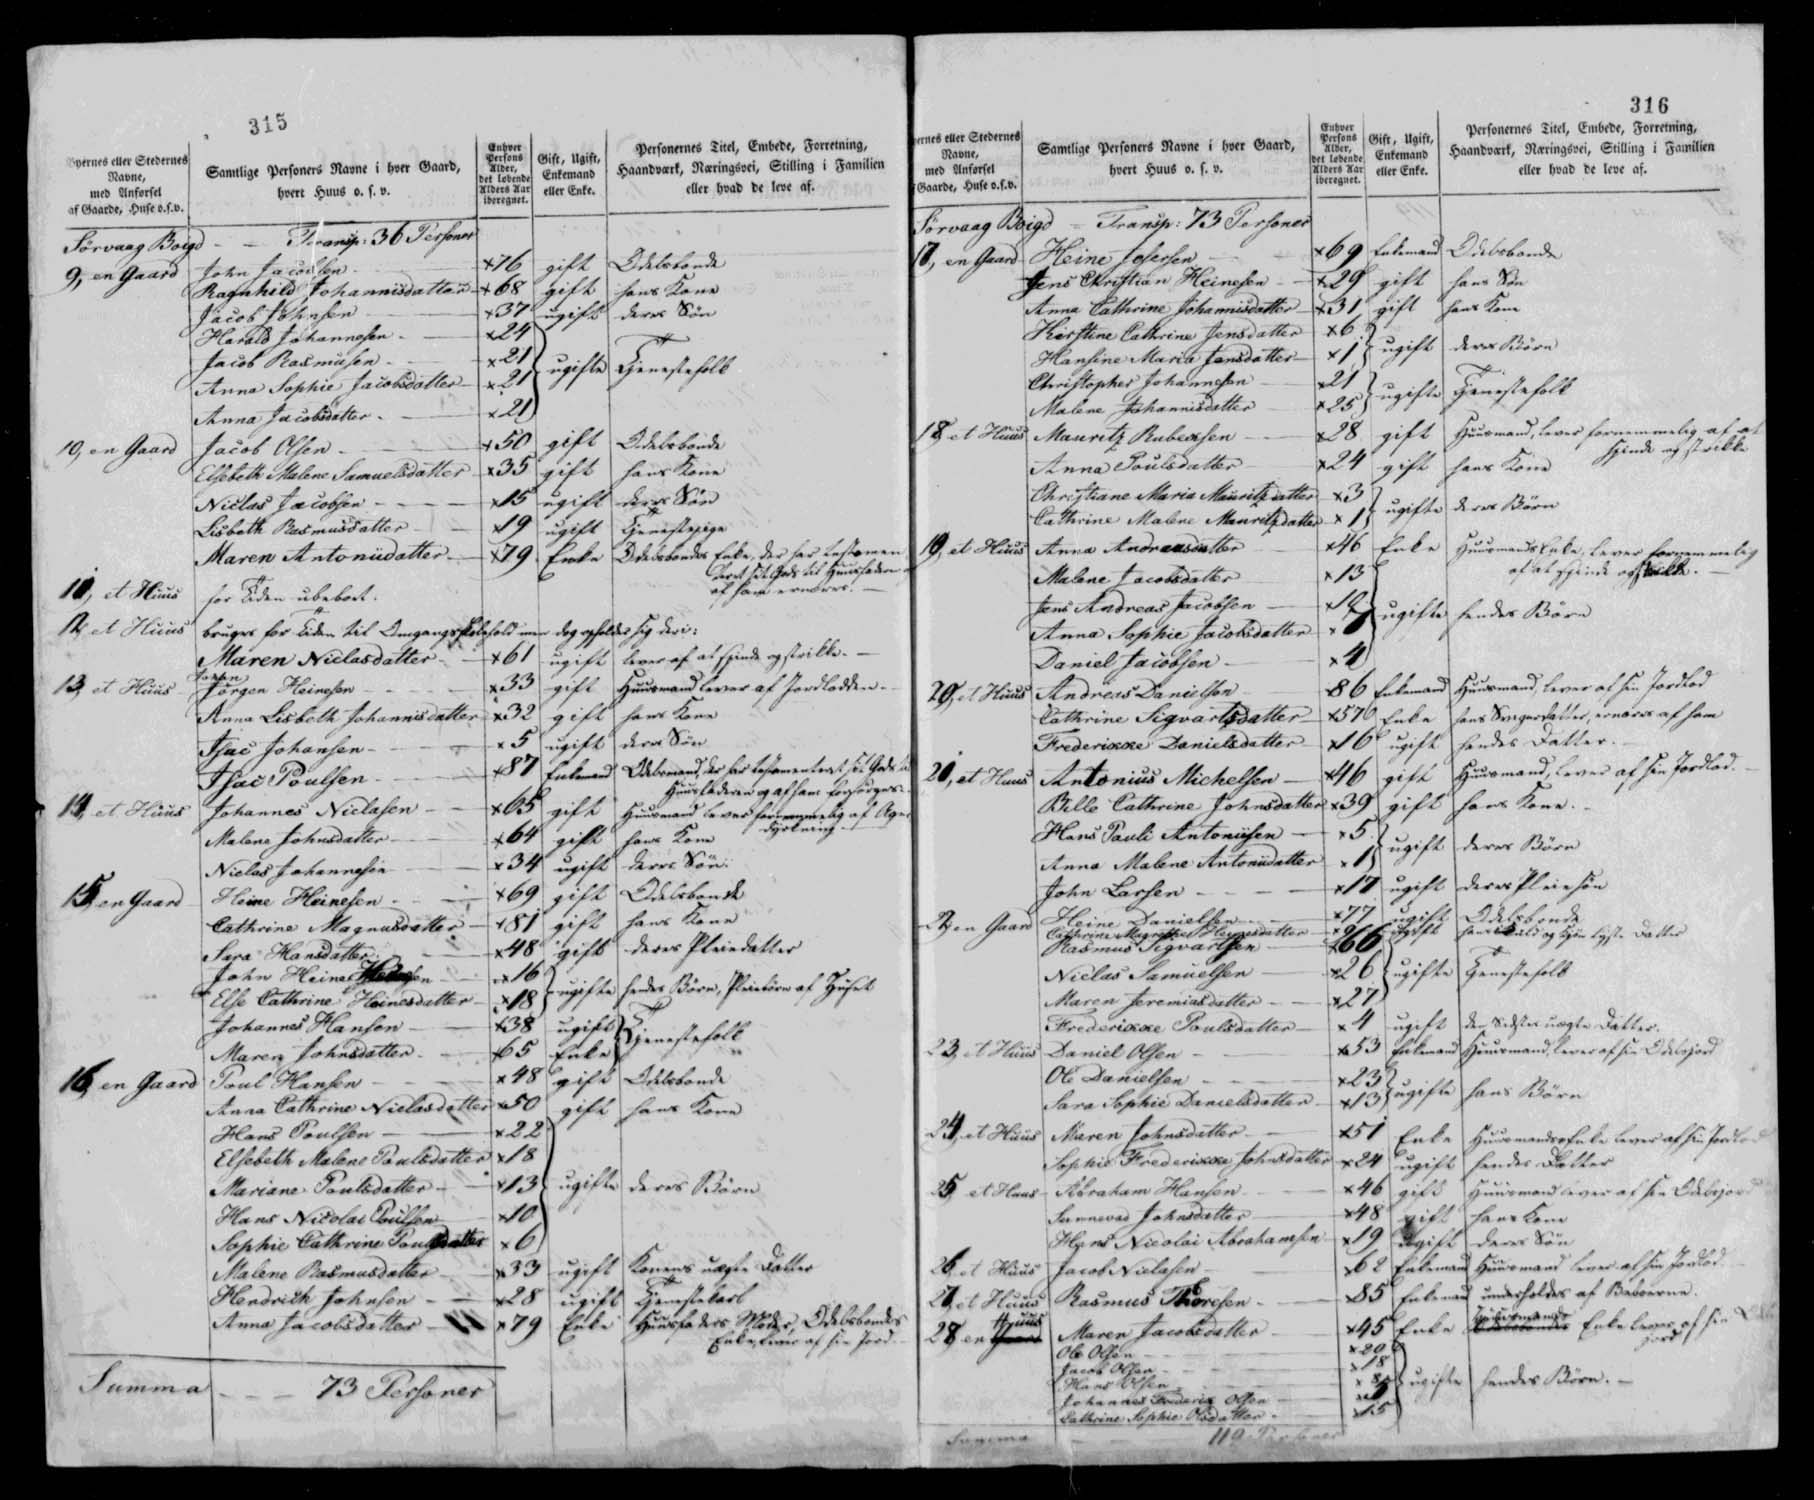 315
Byernes eller Stedernes Navne, med Anførsel af Gaarde, Huse o.s.v.
Samtlige Personers Navne i hver Gaard, hvert Huus o. s. v.
Enhver Persons Alder, det løbende Alders Aar iberegnet.
Gift, Ugift, Enkemand eller Enke.
Personernes Titel, Embede, Forretning, Haandværk, Næringsvei, Stilling i Familien eller hvad de leve af.
Sørvaag Boigd - - Transp: 36 Personer
9, en Gaard John Jacobsen ×76 gift Odelsbonde
Ragnhild Johannisdatter ×68 gift hans Kone
Jacob Johnsen ×37 ugift deres Søn
Harald Johannesen ×24
Jacob Rasmusen ×21 ugifte Tjenestefolk
Anna Sophie Jacobsdatter ×21
Anna Jacobsdatter ×21
10, en Gaard Jacob Olsen ×50 gift Odelsbonde
Elsebeth Malene Samuelsdatter ×35 gift hans Kone
Niclas Jacobsen ×15 ugift deres Søn
Lisbeth Rasmusdatter ×19 ugift Tjenestepige
Maren Antoniidatter ×79 Enke Odelsbondes Enke, der har testamen
teret sit Gods til Huusfaderen
af ham ernæres.
11, et Huus for Tiden ubeboet.
12, et Huus bruges for Tiden til Omgangsskolehold men dog opholder sig deri:
Maren Niclasdatter ×61 ugift lever af at spinde og strikke.
13, et Huus Jørgen Heinesen ×33 gift Huusmand lever af Jordlodden
Anna Lisbeth Johannisdatter ×32 gift hans Kone
Isac Johansen ×5 ugift deres Søn
Isac Poulsen ×87 Enkemand Odelsmand, der har testamenteret sit Gods til
Huusfaderen og af ham forsørges
14, et Huus Johannes Niclasen ×65 gift Huusmand lever fornemmelig af Ager
dyrkning
Malene Johnsdatter ×64 gift hans Kone
Niclas Johannesen ×34 ugift deres Søn.
15, en Gaard Heine Heinesen ×69 gift Odelsbonde
Cathrine Magnusdatter ×81 gift hans Kone
Sara Hansdatter ×48 gift deres Pleiedatter
John Heinesen ×16
Else Cathrine Heinesdatter ×18 ugifte hendes Børn, Pleiebørn af Huset
Johannes Hansen ×38 ugift Tjenestefolk
Maren Johnsdatter ×65 Enke
16, en Gaard Poul Hansen ×48 gift Odelsbonde
Anna Cathrine Niclasdatter ×50 gift hans Kone
Hans Poulsen ×22
Elsebeth Malene Poulsdatter ×18
Mariane Poulsdatter ×13 ugifte deres Børn
Hans Nicolai Poulsen ×10
Sophie Cathrine Poulsdatter ×6
Malene Rasmusdatter ×33 ugift Konens uægte Datter
Hendrick Johnsen ×28 ugift Tjenestekarl
Anna Jacobsdatter ×79 Enke Huusfaders Moder, Odelsbondes
Enke, lever af sin Jord.
Summa - - - 73 Personer
316
Byernes eller Stedernes Navne, med Anførsel af Gaarde, Huse o.s.v.
Samtlige Personers Navne i hver Gaard, hvert Huus o. s. v.
Enhver Persons Alder, det løbende Alders Aar iberegnet.
Gift, Ugift, Enkemand eller Enke.
Personernes Titel, Embede, Forretning, Haandværk, Næringsvei, Stilling i Familien eller hvad de leve af.
Sørvaag Boigd = Transp: 73 Personer
17, en Gaard Heine Josefsen ×69 Enkemand Odelsbonde
Jens Christian Heinesen ×29 gift hans Søn
Anna Cathrine Johannisdatter ×31 gift hans Kone
Kirstine Cathrine Jensdatter ×6
Hansine Maria Jensdatter ×1 ugift deres Børn
Christopher Johannesen ×21
Malene Johannisdatter ×25 ugifte Tjenestefolk
18, et Huus Mauritz Rubeksen ×28 gift Huusmand, lever fornemmelig af at
spinde og strikke
Anna Poulsdatter ×24 gift hans Kone
Christiane Maria Mauritzdatter ×3
Cathrine Malene Mauritzdatter ×1 ugifte deres Børn
19, et Huus Anna Andreasdatter ×46 Enke Huusmands Enke, lever fornemmelig
af at spinde og strikke.
Malene Jacobsdatter ×13
Jens Andreas Jacobsen
Anna Sophie Jacobsdatter ugifte hendes Børn
Daniel Jacobsen ×4
20, et Huus Andreas Danielsen ×86 Enkemand Huusmand, lever af sin Jordlod
Cathrine Sigvartsdatter Enke hans Svigerdatter, ernæres af ham
Frederikke Danielsdatter ×16 ugift hendes Datter.
21, et Huus Antonius Michelsen ×46 gift Huusmand, lever af sin Jordlod.
Bille Cathrine Johnsdatter ×39 gift hans Kone.
Hans Pauli Antoniisen ×5
Anna Malene Antoniidatter ×1 ugift deres Børn
John Larsen ×17 ugift deres Pleiesøn
22, en Gaard Heine Danielsen ×77 ugift Odelsbonde
Cathrine Margrethe Heinesdatter ugift
Rasmus Sigvartsen ×66
Niclas Samuelsen ×26 ugifte Tjenestefolk
Maren Jeremiasdatter ×27
Frederikke Poulsdatter ×4 ugift den Sidstes uægte Datter.
23, et Huus Daniel Olsen ×53 Enkemand Huusmand, lever af sin Odelsjord
Ole Danielsen ×23
Sara Sophie Danielsdatter ×13 ugifte hans Børn
24, et Huus Maren Johnsdatter ×51 Enke Huusmands Enke lever af sin Jordlod
Sophie Frederikke Johnsdatter ×24 ugift hendes Datter
25, et Huus Abraham Hansen ×46 gift Huusmand lever af sin Odelsjord
Sunneva Johnsdatter ×48 gift hans Kone
Hans Nicolai Abrahamsen ×19 ugift deres Søn
26, et Huus Jacob Niclasen ×62 Enkemand Huusmand lever af sin Jordlod
27, et Huus Rasmus Thoresen ×85 Enkemand underholdes af Beboerne.
28, en Huus Maren Jacobsdatter ×45 Enke Huusmands Enke lever af sin
jord
Ole Olsen ×20
Jacob Olsen ×18
Hans Olsen ×8 ugifte hendes Børn.
Johannes Frederik Olsen
Cathrine Sophie Olsdatter ×15
Summa 119 Personer